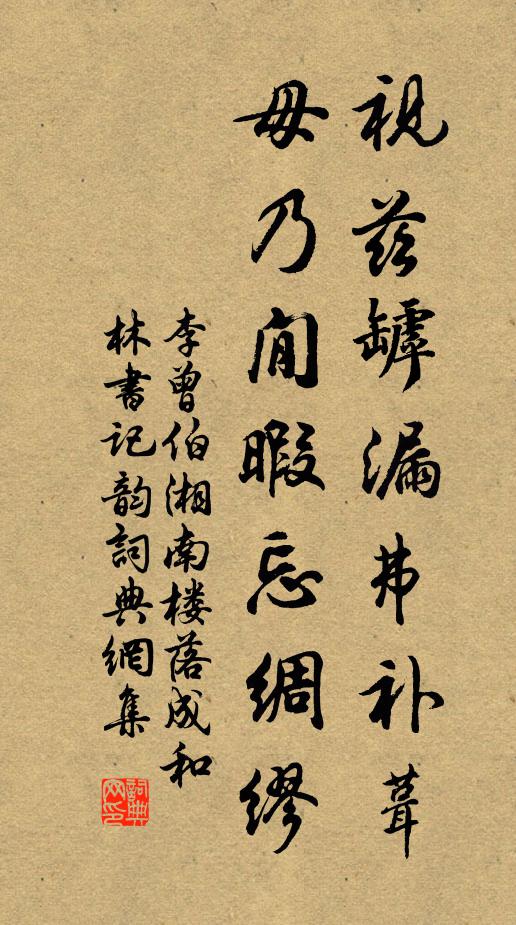 视兹罅漏弗补葺
毋乃閒暇忘绸缪
李曾伯湘南楼落成和
林書记韵詞典網集
詞典网印